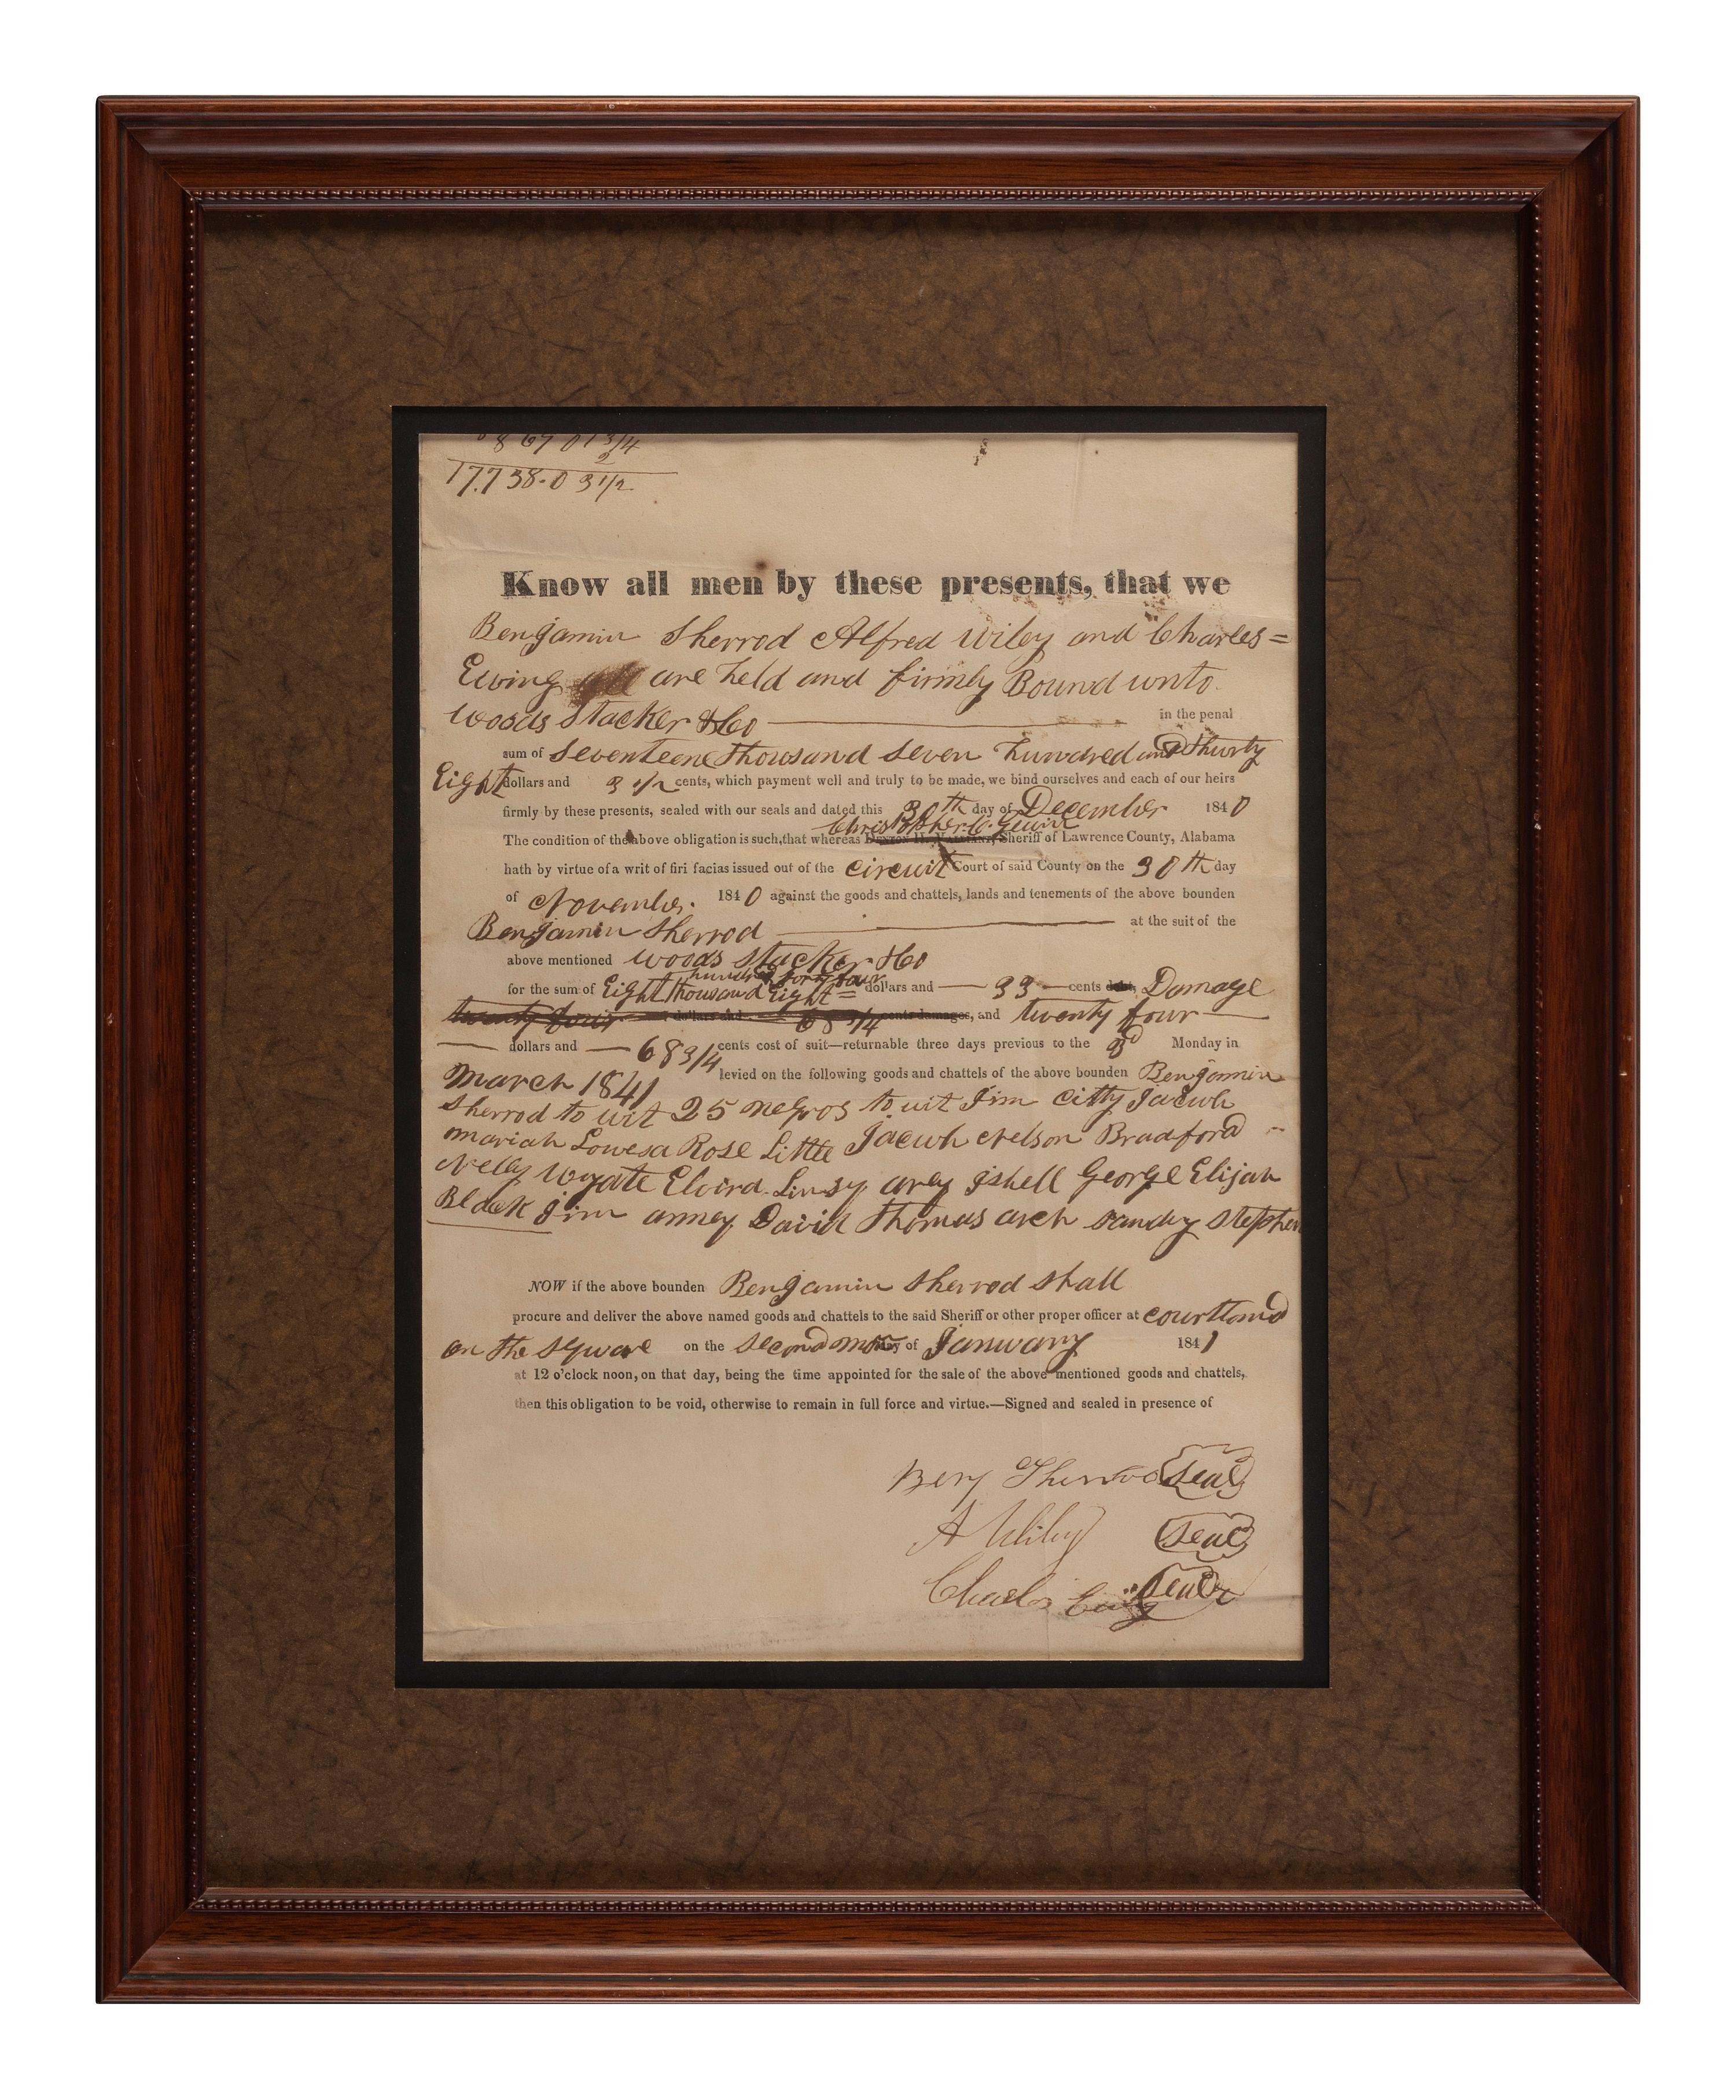 8 67 01 3/4
2
17.738.03 1/2
Know all men by these presents, that we
Benjamin Sherrod Alfred Wiley and Charles=
Ewing are held and firmly Bound unto
Woods Stacker & Co in the penal
sum of Seventeene Thousand Seven hundred and Thirty
Eight dollars and 3 1/2 cents, which payment well and truly to be made, we bind ourselves and each of our heirs
firmly by these presents, sealed with our seals and dated this 30th day of December 1840
Christopher C. Gewin
The condition of the above obligation is such, that whereas Sheriff of Lawrence County, Alabama
hath by virtue of a writ of firi facias issued out of the circuit Court of said County on the 30th day
of November. 1840 against the goods and chattels, lands and tenements of the above bounden
Benjamin Sherrod at the suit of the
above mentioned Woods Stacker & Co
hundred forty four
for the sum of Eight Thousand Eight = dollars and — 33 — cents Damage
twenty four dollars and 68 3/4 cents damages, and twenty four
dollars and — 68 3/4 cents cost of suit—returnable three days previous to the 3d Monday in
March 1841 levied on the following goods and chattels of the above bounden Benjamin
Sherrod to wit 25 negros to wit Jim Citty Jacwb
Mariah Lowesa Rose Little Jacwb Nelson Bradford
Nelly Wyatte Elvird. Linsy arey Ishell George Elijah
Black Jim anney David Thomas arch sandy Stephen
NOW if the above bounden Benjamin Sherrod shall
procure and deliver the above named goods and chattels to the said Sheriff or other proper officer at courtland
on the square on the second mon day of January 1841
at 12 o'clock noon, on that day, being the time appointed for the sale of the above mentioned goods and chattels,
then this obligation to be void, otherwise to remain in full force and virtue.—Signed and sealed in presence of
Benj Sherrod Seal
A Wiley Seal
Charles Ewing Seal